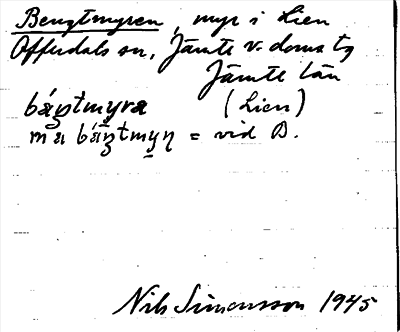 Bengtmyren, myr i Lien
Offerdals sn, Jämtl v. doms tg
Jämtl län
(Lien)
= vid B.
Nils Simonsson 1945